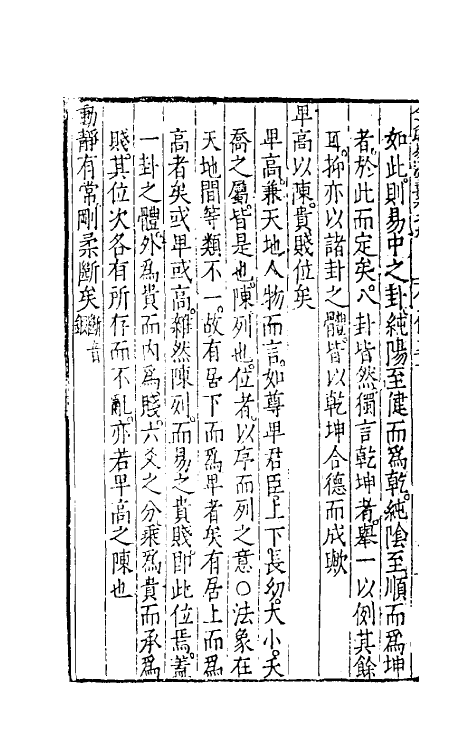 如此則易中之卦純陽至健而爲乾純陰至順而爲坤
者於此而定矣八卦皆然獨言乾坤者舉一以例其餘
耳抑亦以諸卦之體皆以乾坤合德而成歟
卑高以陳貴賤位矣
卑高兼天地人物而言如尊卑君臣上下長幼大小夭
喬之屬皆是也陳列也位者以序而列之意○法象在
天地間等類不一故有居下而爲卑者矣有居上而爲
高者矣或卑或高雜然陳列而易之貴賤即此位焉蓋
一卦之體外爲貴而内爲賤六爻之分乘爲貴而承爲
賤其位次各有所存而不亂亦若卑高之陳也
動靜有常剛柔斷矣斷音